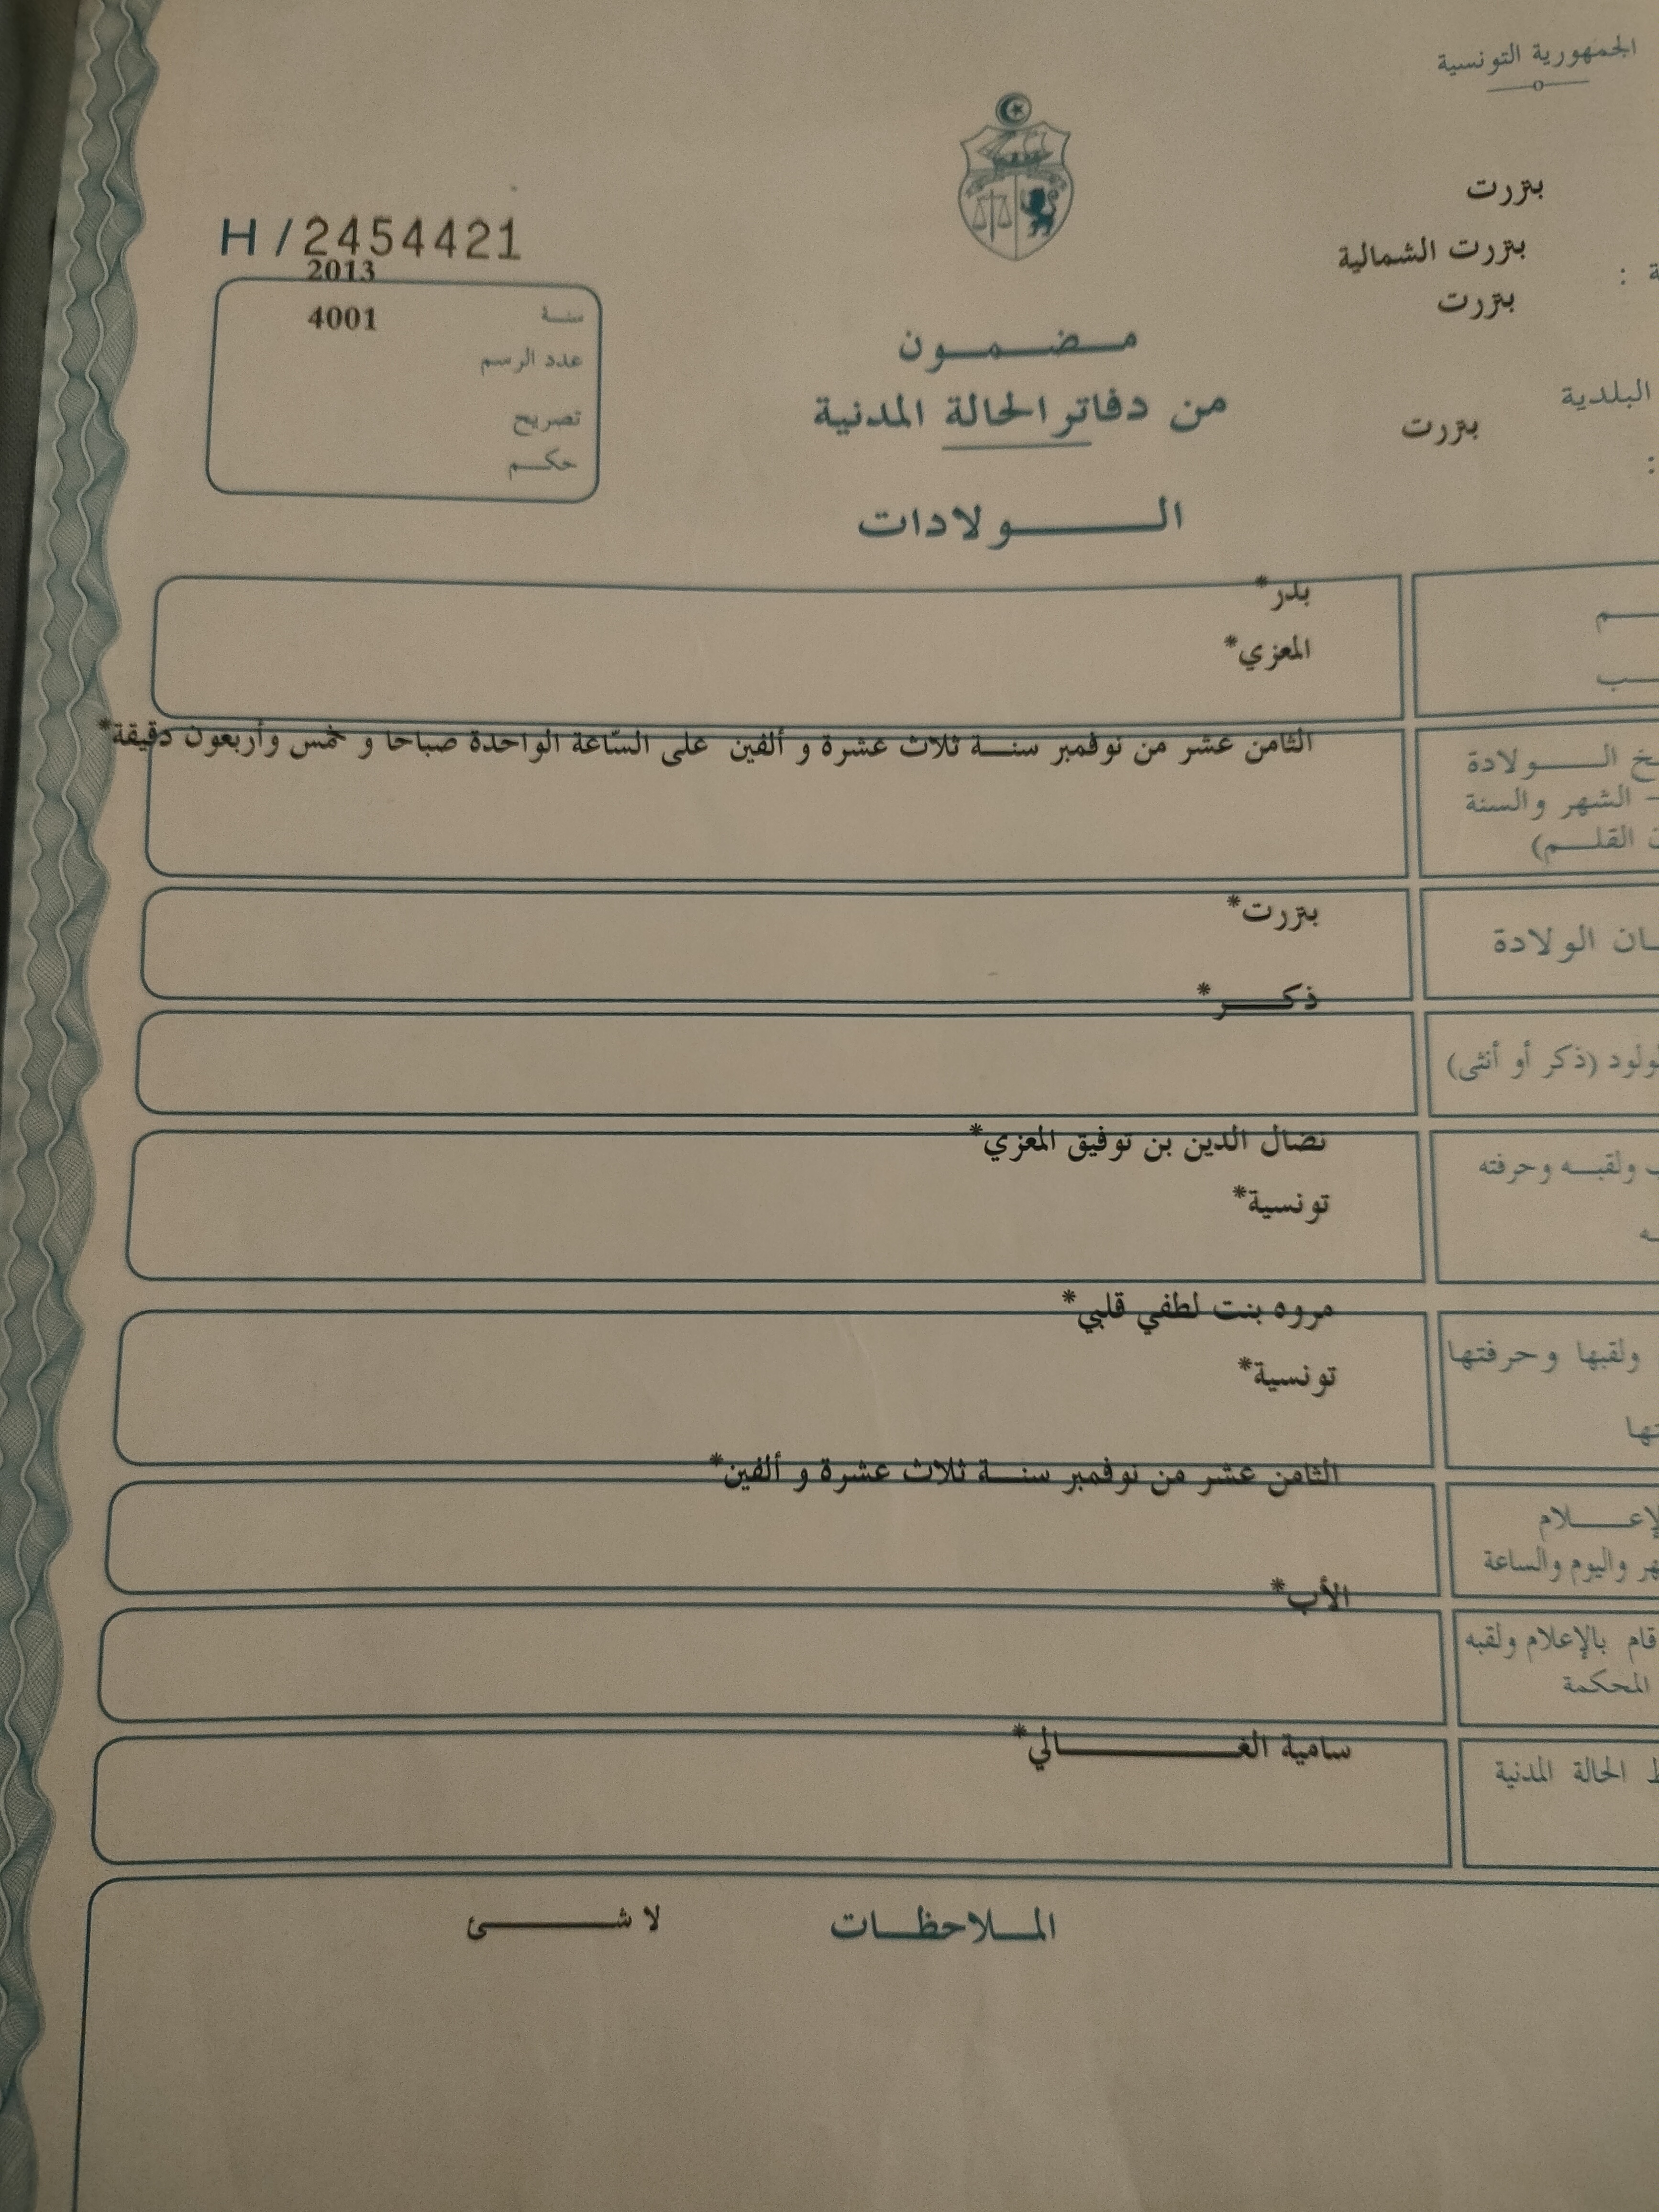 الجمهورية التونسية
بنزرت
بنزرت الشمالية
بنزرت
البلدية
بنزرت
H/2454421
2013
سنة
4001
عدد الرسم
تصريح
حكم
مضمون
من دفاتر الحالة المدنية
الولادات
بدر*
المعزي*
الثامن عشر من نوفمبر سنة ثلاث عشرة و ألفين على السّاعة الواحدة صباحا و خمس وأربعون دقيقة*
الولادة
الشهر والسنة
القلم)
بنزرت*
الولادة
ذكر*
(ذكر أو أنثى)
نضال الدين بن توفيق المعزي*
ولقبه وحرفته
تونسية*
مروه بنت لطفي قلبي*
ولقبها وحرفتها
تونسية*
الثامن عشر من نوفمبر سنة ثلاث عشرة و ألفين*
واليوم والساعة
الأب*
قام بالإعلام ولقبه
المحكمة
سامية الغالي*
الحالة المدنية
الملاحظات لا شئ